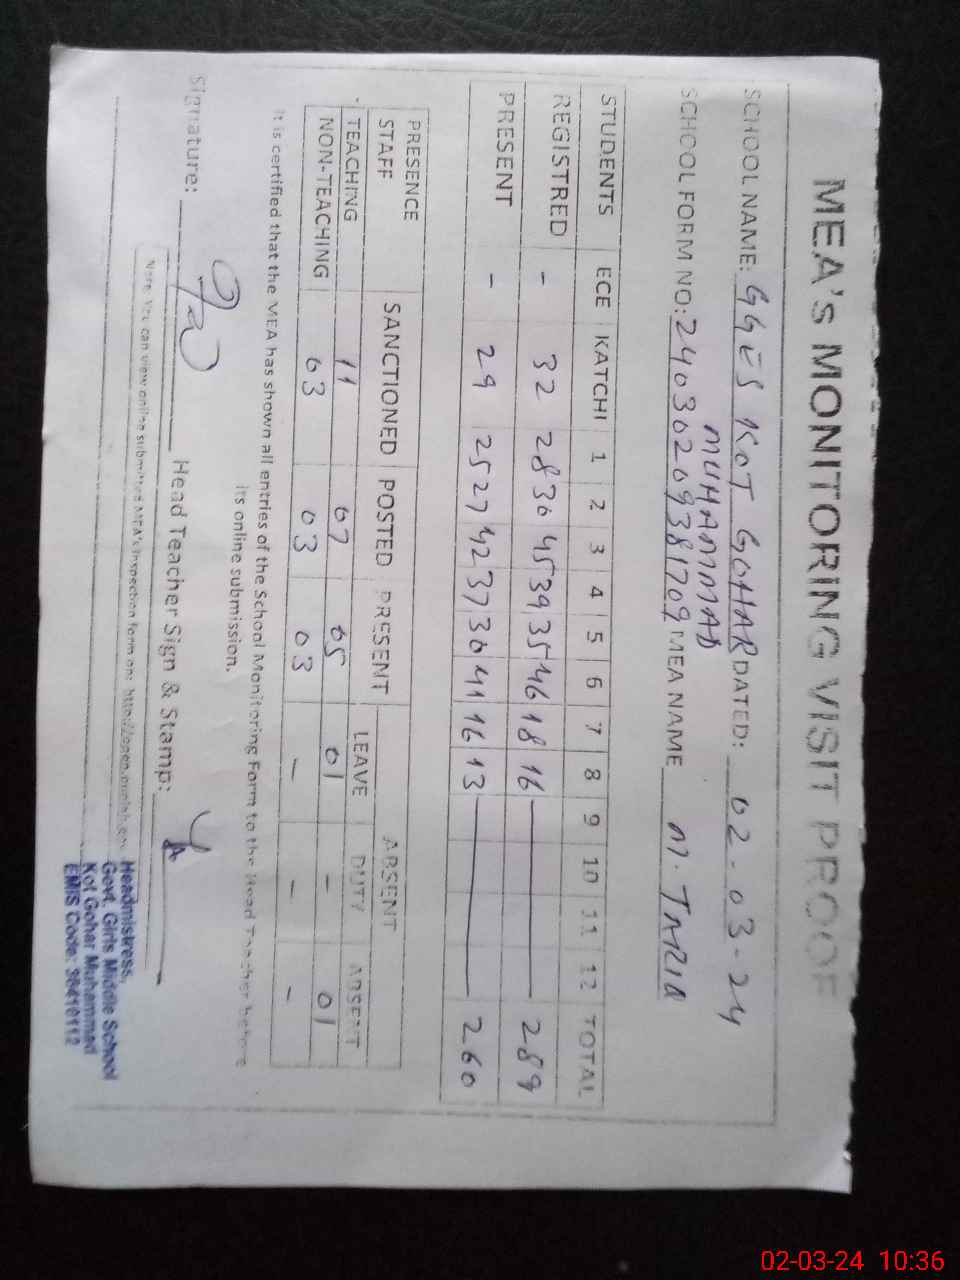 MEA'S MONITORING VISIT PROOF
SCHOOL NAME: GGES KOT GOHAR DATED: 02-03-24
MUHAMMAD
SCHOOL FORM NO: 24030209381709 MEA NAME M. TARIQ
STUDENTS ECE KATCHI 1 2 3 4 5 6 7 8 9 10 11 12 TOTAL
REGISTRED - 32 28 30 45 39 35 46 18 16 289
PRESENT - 29 25 27 42 37 30 41 16 13 260
PRESENCE ABSENT
STAFF SANCTIONED POSTED PRESENT LEAVE DUTY ABSENT
TEACHING 11 07 05 01 - 01
NON-TEACHING 03 03 03 - - -
It is certified that the MEA has shown all entries of the School Monitoring Form to the Head Teacher before
its online submission.
Signature: Head Teacher Sign & Stamp:
Note: You can view online submitted MEA's Inspection form on: http://open.punjab.gov
Headmistress,
Govt. Girls Middle School
Kot Gohar Muhammad
EMIS Code: 38410112
02-03-24 10:36